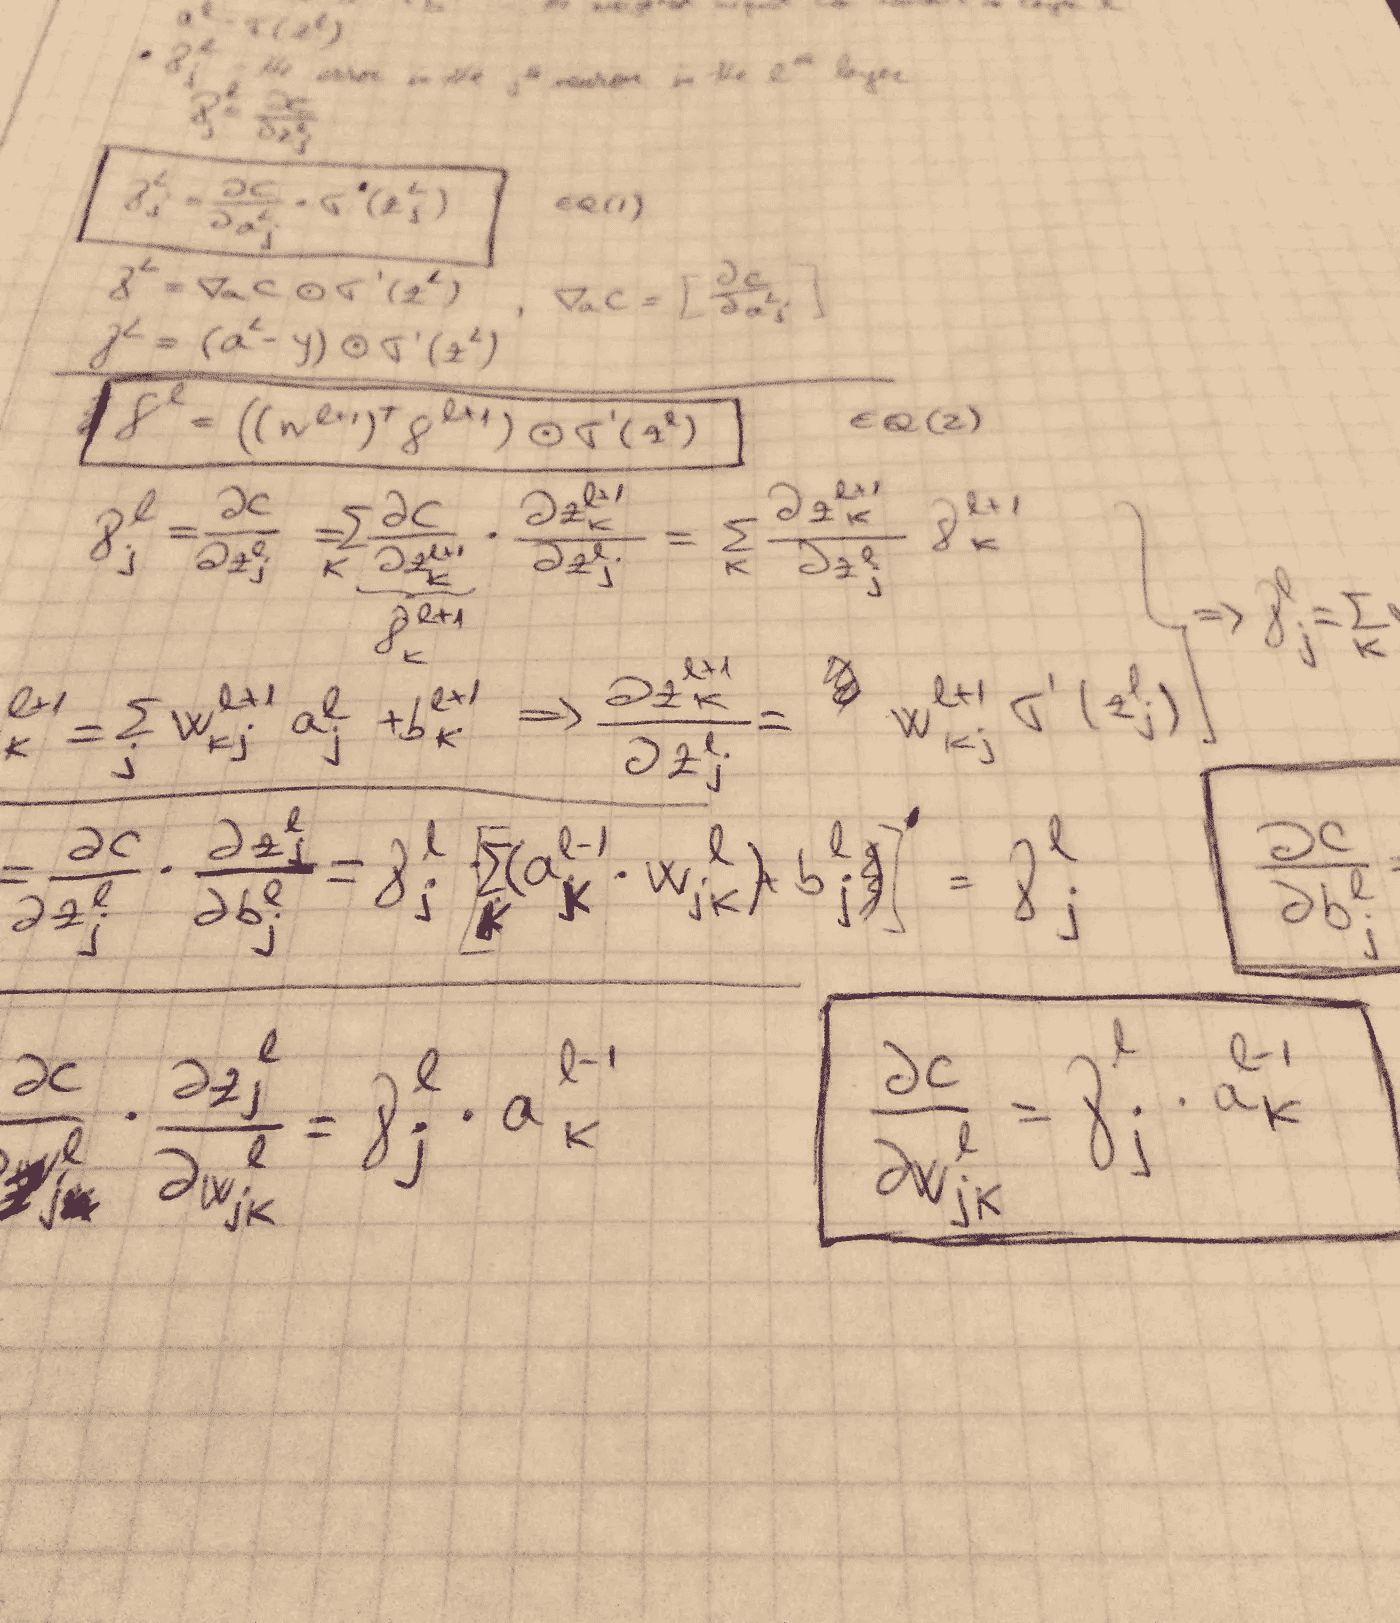 the weighted input
aˡ = σ(zˡ)
• δⱼˡ - the error in the jᵗʰ neuron in the lᵗʰ layer
δⱼˡ = ∂C/∂zⱼˡ
δⱼᴸ = ∂C/∂aⱼᴸ · σ'(zⱼᴸ) EQ(1)
δᴸ = ∇ₐC ⊙ σ'(zᴸ) , ∇ₐC = [∂C/∂aⱼᴸ]
δᴸ = (aᴸ - y) ⊙ σ'(zᴸ)
δˡ = ((wˡ⁺¹)ᵀ δˡ⁺¹) ⊙ σ'(zˡ) EQ(2)
δⱼˡ = ∂C/∂zⱼˡ = Σₖ ∂C/∂zₖˡ⁺¹ · ∂zₖˡ⁺¹/∂zⱼˡ = Σₖ ∂zₖˡ⁺¹/∂zⱼˡ δₖˡ⁺¹
δₖˡ⁺¹
=> δⱼˡ = Σₖ
ₖˡ⁺¹ = Σⱼ wₖⱼˡ⁺¹ aⱼˡ + bₖˡ⁺¹ => ∂zₖˡ⁺¹/∂zⱼˡ = wₖⱼˡ⁺¹ σ'(zⱼˡ)
= ∂C/∂zⱼˡ · ∂zⱼˡ/∂bⱼˡ = δⱼˡ [Σₖ(aₖˡ⁻¹ · wⱼₖˡ) + bⱼˡ]' = δⱼˡ ∂C/∂bⱼˡ =
∂C/∂zⱼˡ · ∂zⱼˡ/∂wⱼₖˡ = δⱼˡ · aₖˡ⁻¹ ∂C/∂wⱼₖˡ = δⱼˡ · aₖˡ⁻¹